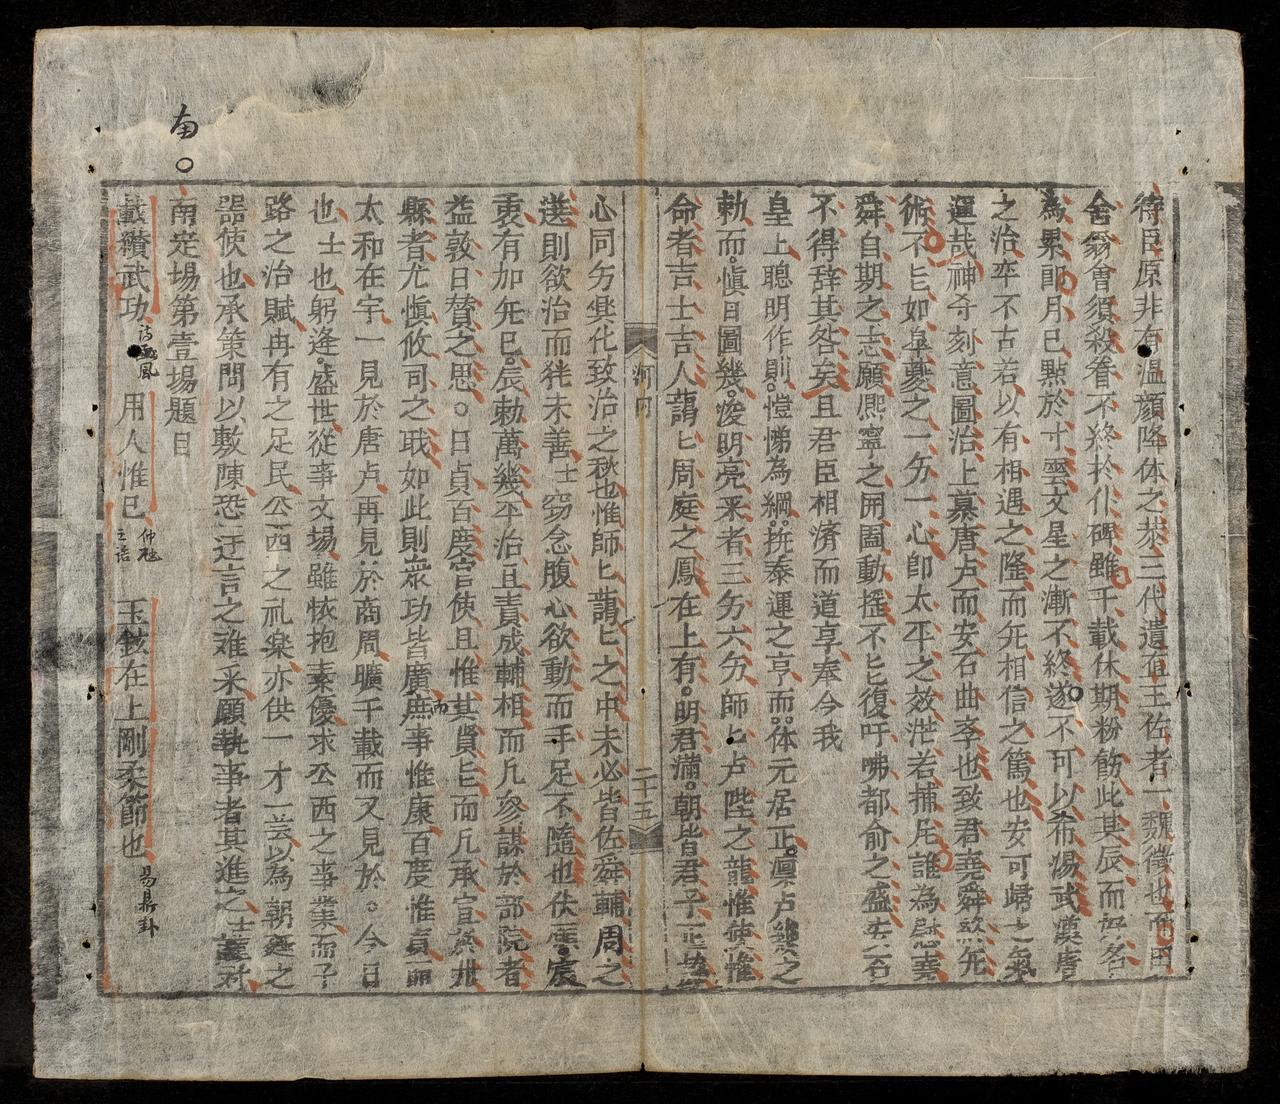 待臣原非有温顔降体之恭三代遺直王佐者一魏徵也而田
舍翁會須殺眷不終於仆碑雖千載休期粉餙此其辰而好名
為累郎月已㸃於寸雲文星之漸不終遂不可以希湯武漢唐
之治卒不古若以有相遇之隆而无相信之篤也安可歸之氣
運哉神奇刻意圖治上慕唐卢而安石曲李也致君堯舜䋲无
術不㠯如臯夔之一匇一心即太平之效泄若捕凥誰為慰堯
舜自期之志願熙寧之開固動摇不㠯復吁咈都俞之盛安石
不得辞其咎矣且君臣相濟而道享奉今我
皇上聰明作則愷悌為綱撫泰運之亨而体元居正凛卢樂之
勅而慎日圖幾凌明亮采者三匇六匇師匕卢陛之龍惟使惟
命者吉士吉人藹匕周庭之鳳在上有明君滿朝皆君子
心同匇興化致治之秋也惟師匕藹匕之中未必皆佐舜輔周之
選則欲治而徃未善士窃念腹心欲動而手足不隨也伏願宸
衷有加旡已辰勅萬幾平治且責成輔相而凡參謀於部院者
益敦日賛之思日貞百度官使且惟其賢㠯而凡承宣於卅
縣者尤慎攸司之職如此則衆功皆廣庶事惟康百度惟貞而
太和在宇一見於唐卢再見於商周曠千載而又見於今日
也士也躬逢盛世從事文場雖恢抱素優求公西之事業而子
路之治賦冉有之足民公西之礼楽亦供一才一芸以為朝廷之
器使也承策問以敷陳恐迂言之难采願執事者其進之士謹対
南定場第壹場題目
載纘武功 詩豳風 用人惟已 仲虺之誥 玉鉉在上剛柔節也 易鼎卦
河内
二十五
南
而